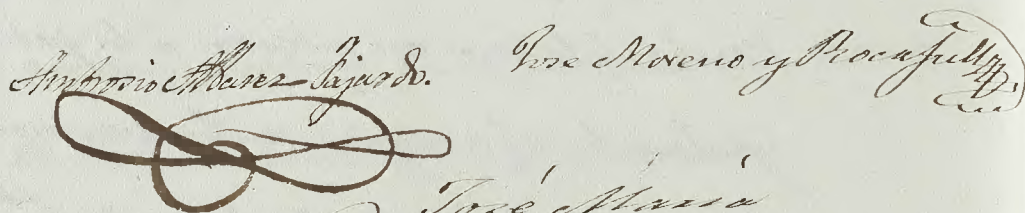 Antonio Alvarez Fajardo.
Jose Moreno y Rocafull
José Maria